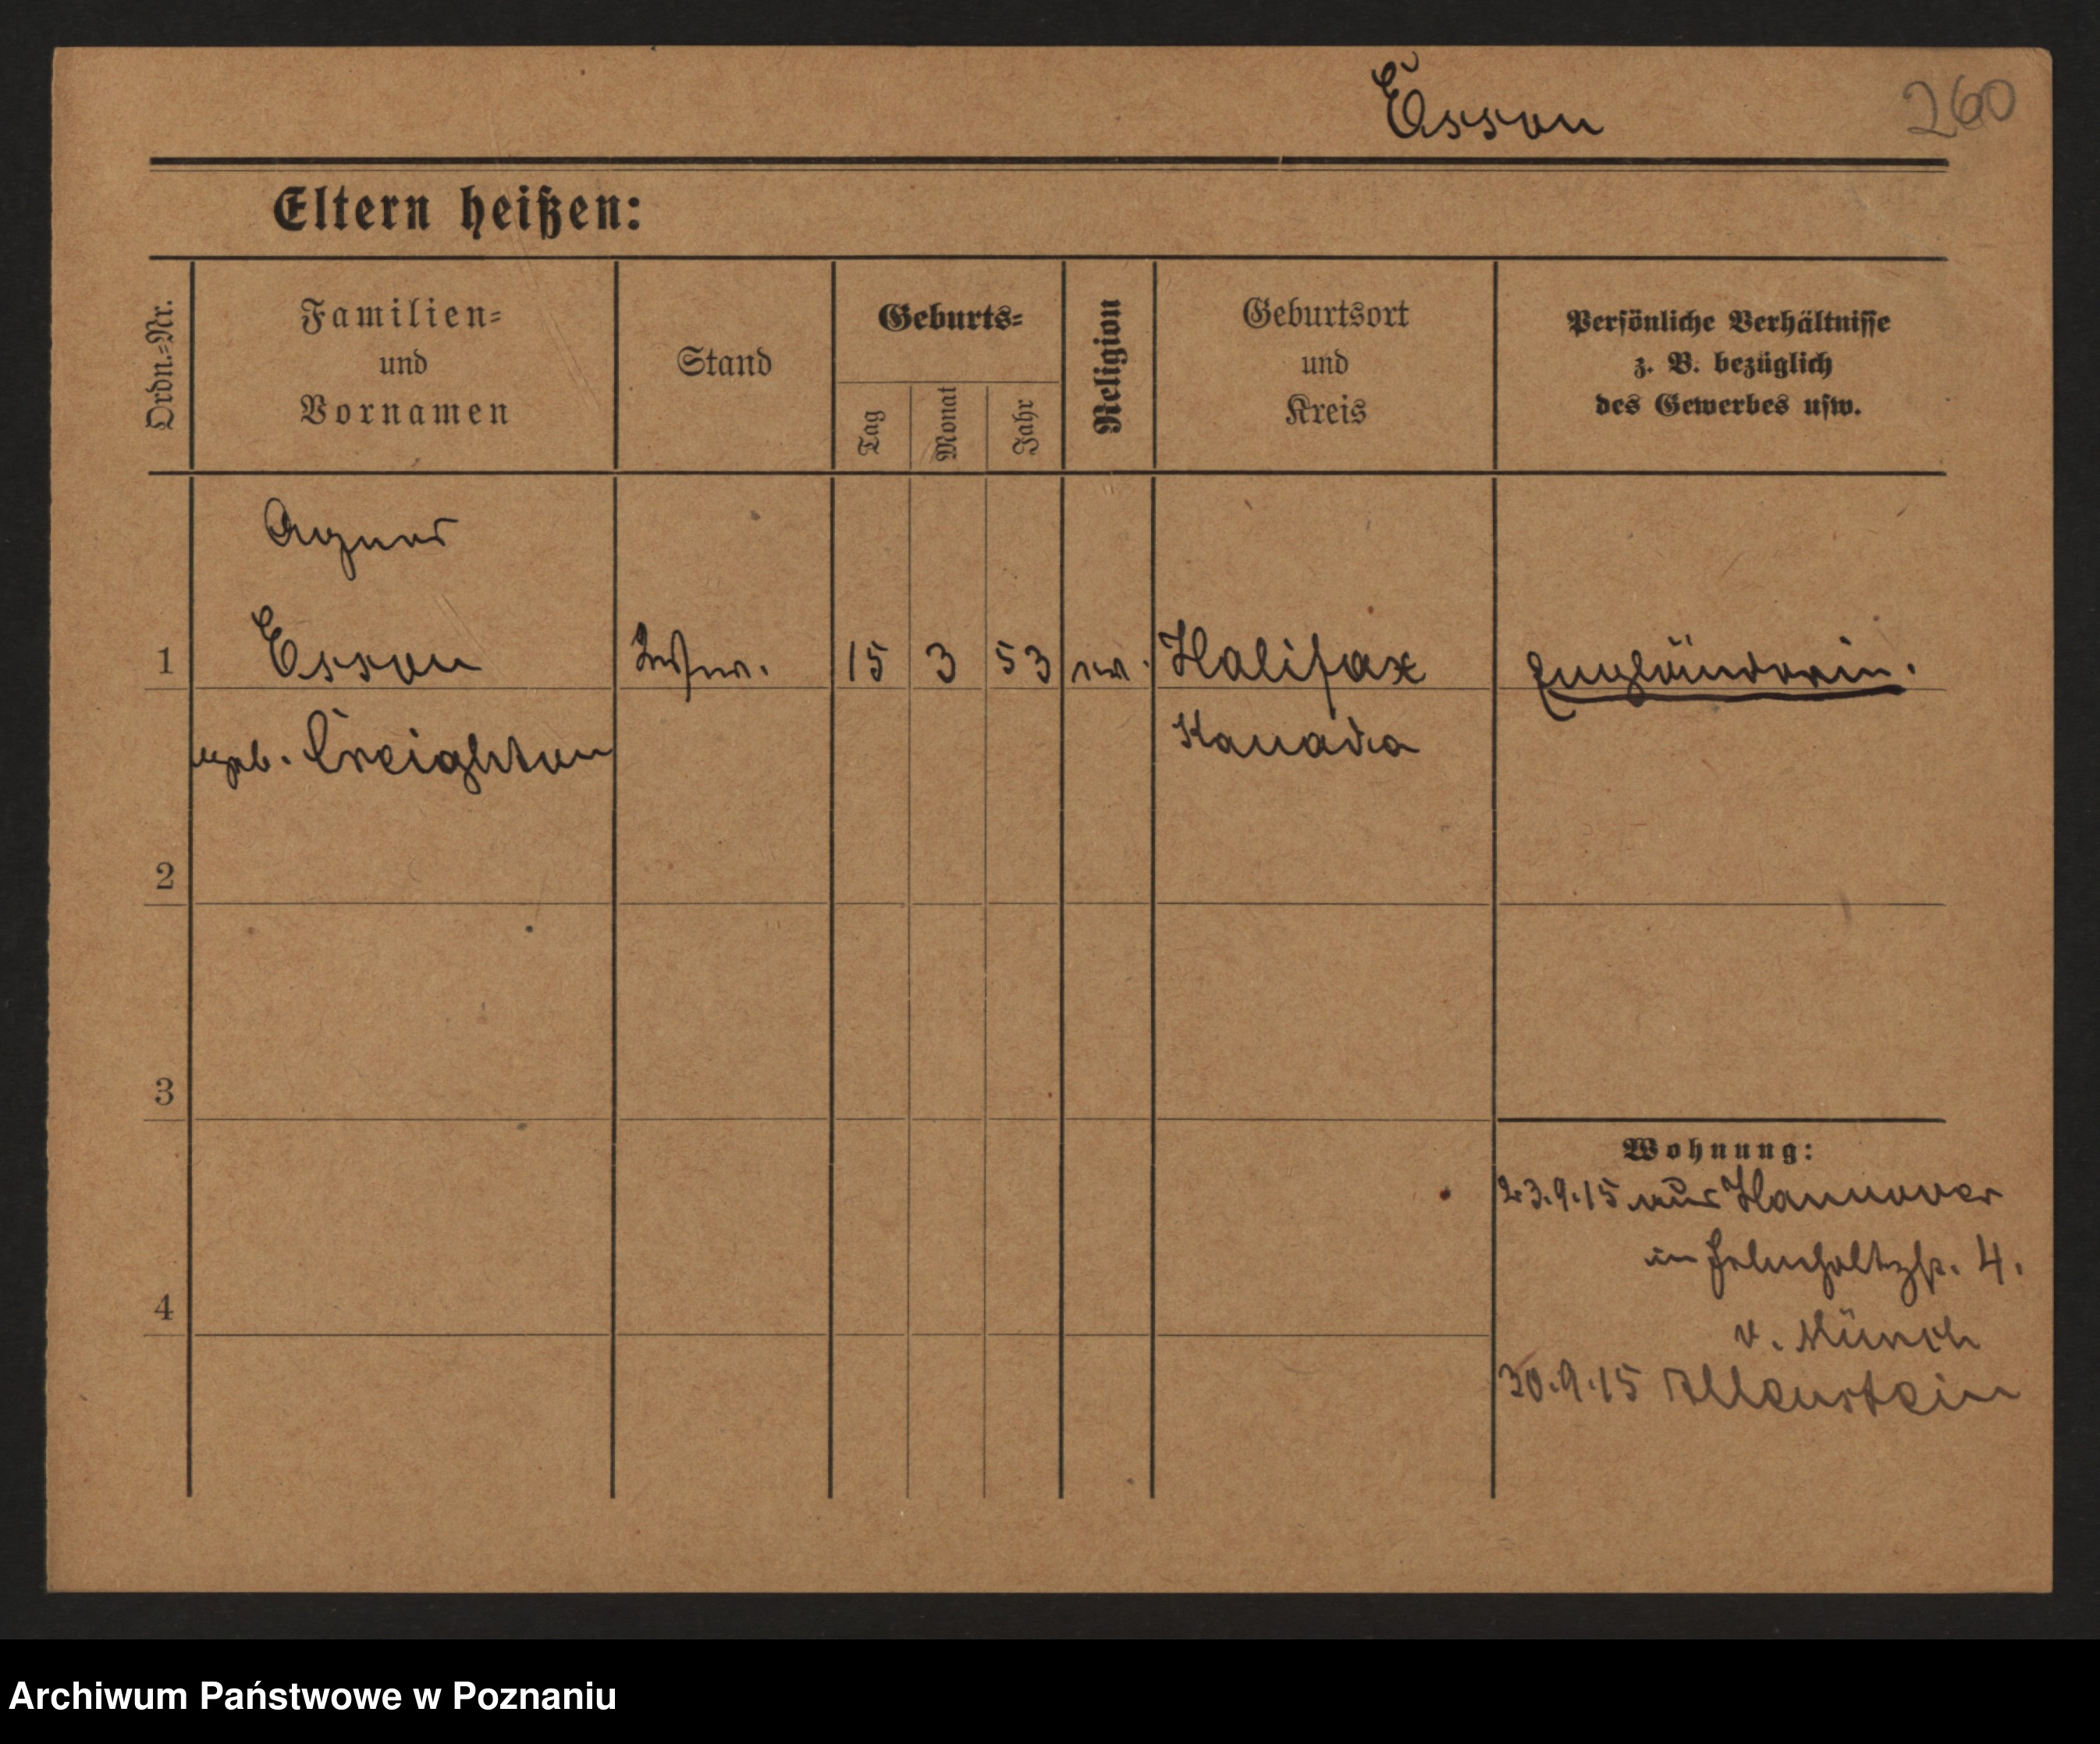 Esson
260
Eltern heißen:
Ordn.=Nr.
Familien=
und
Vornamen
Stand
Geburts=
Tag
Monat
Jahr
Religion
Geburtsort
und
Kreis
Persönliche Verhältnisse
z. B. bezüglich
des Gewerbes usw.
Agnes
1 Esson 15 3 53 ev. Halifax Engländerin.
geb. Creighton Kanada
2
3
Wohnung:
23.9.15 aus Hannover
in 4.
4
v. Münch
30.9.15 Allenstein
Archiwum Państwowe w Poznaniu